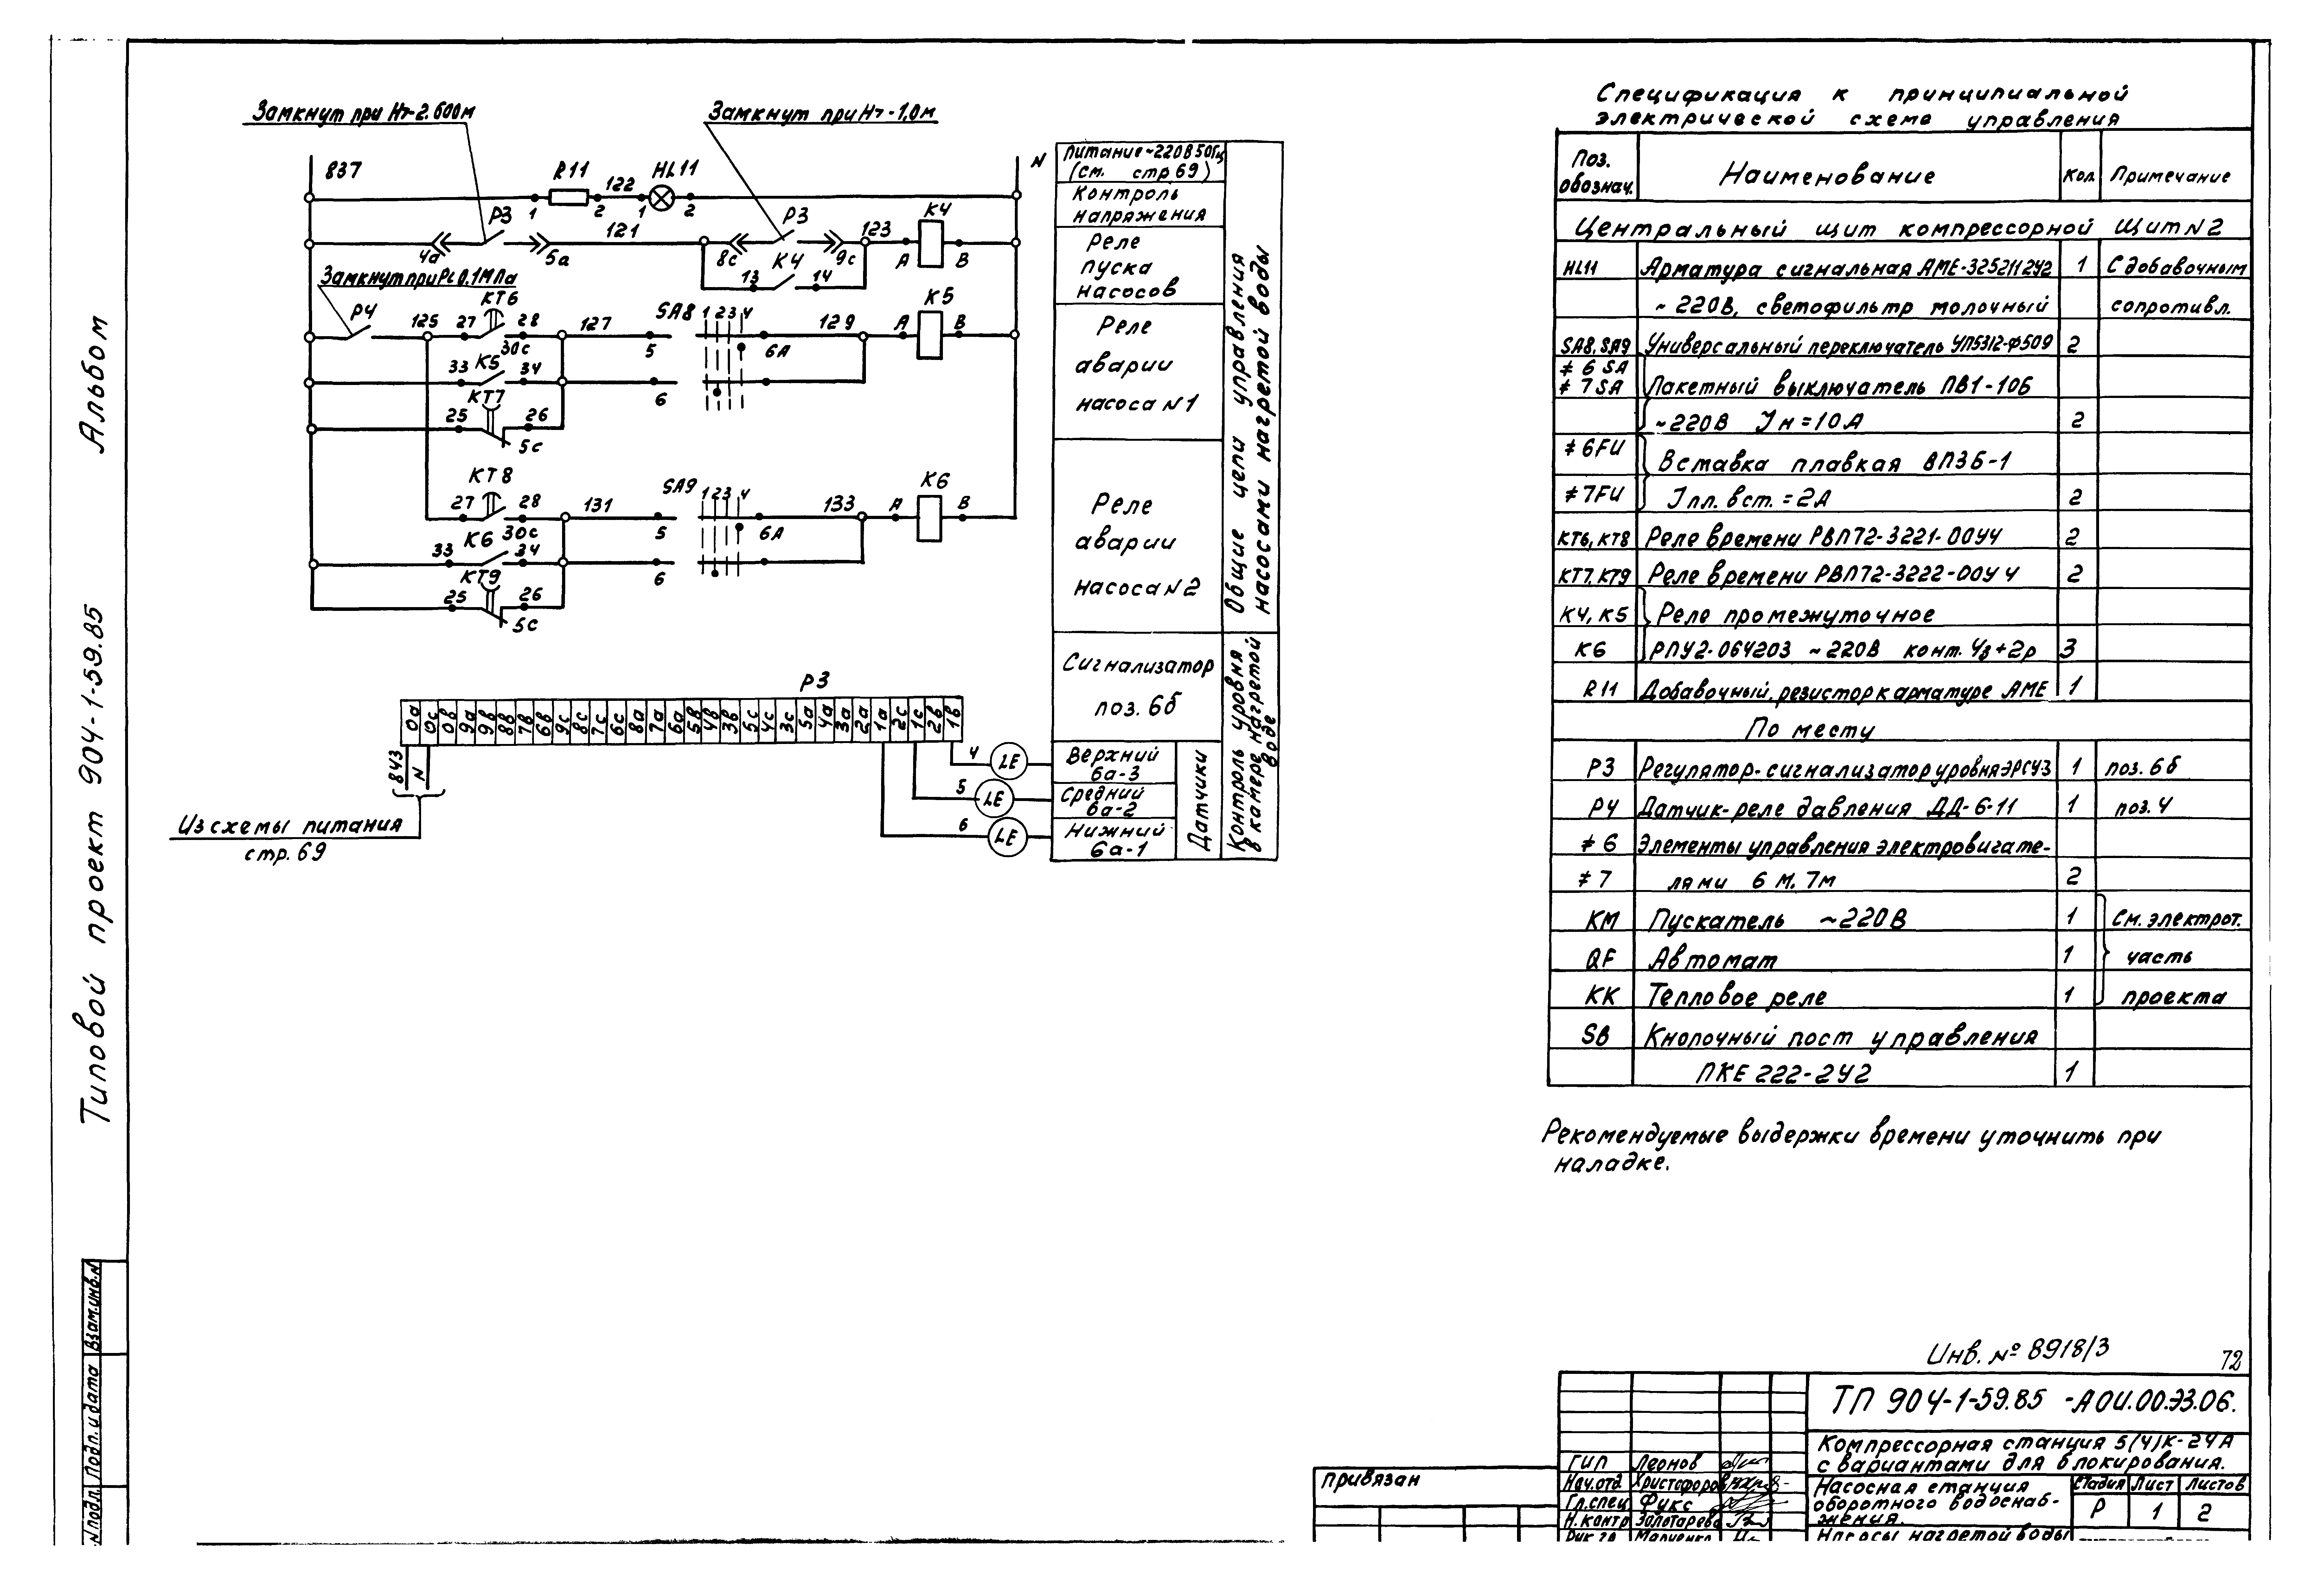 Замкнут при Н≥-2.600м
Замкнут при Н≥-1,0м
837
R11
122
HL11
N
1
2
1
2
Р3
121
Р3
123
К4
4а
5а
8с
9с
А
В
К4
13
14
Замкнут при Р≤0.1МПа
Р4
125
27
КТ6
28
30с
127
SA8
1 2 3 4
5
6А
129
К5
А
В
33
К5
34
6
КТ7
25
26
5с
КТ8
27
28
30с
131
SA9
1 2 3 4
5
6А
133
К6
А
В
33
К6
34
6
КТ9
25
26
5с
Питание ~220В 50Гц
(см. стр 69)
Контроль
напряжения
Реле
пуска
насосов
Реле
аварии
насоса N1
Реле
аварии
насоса N2
Общие цепи управления
насосами нагретой воды
Сигнализатор
поз. 6б
Верхний
6а-3
Средний
6а-2
Нижний
6а-1
Датчики
Контроль уровня
в камере нагретой
воде
Р3
0а 0с 0в 9а 9в 8в 7в 6в 9с 8с 7с 6с 8а 7а 6а 5в 4в 3в 5с 4с 3с 5а 4а 3а 2а 1а 2с 1с 2в 1в
843
N
4 LE
5 LE
6 LE
Из схемы питания
стр. 69
Спецификация к принципиальной
электрической схеме управления
Поз. обознач. Наименование Кол. Примечание
Центральный щит компрессорной Щит N2
HL11 Арматура сигнальная АМЕ-325211242 1 С добавочным
~220В, светофильтр молочный сопротивл.
SA8, SA9 Универсальный переключатель УП5312-Ф509 2
≠ 6 SA
≠ 7 SA Пакетный выключатель ПВ1-10Б
~220В Iн=10А 2
≠ 6FU Вставка плавкая ВП3Б-1
≠ 7FU Iпл. вст. = 2А 2
КТ6, КТ8 Реле времени РВП72-3221-00У4 2
КТ7, КТ9 Реле времени РВП72-3222-00У4 2
К4, К5 Реле промежуточное
К6 РПУ2-064203 ~220В конт. 4з+2р 3
R11 Добавочный, резистор к арматуре АМЕ 1
По месту
Р3 Регулятор-сигнализатор уровня ЭРСУ-3 1 поз. 6б
Р4 Датчик-реле давления ДД-6-11 1 поз. 4
≠ 6 Элементы управления электровигате-
≠ 7 лями 6 М. 7м 2
КМ Пускатель ~220В 1 См. электрот.
QF Автомат 1 часть
КК Тепловое реле 1 проекта
SВ Кнопочный пост управления
ПКЕ 222-2У2 1
Рекомендуемые выдержки времени уточнить при
наладке.
Альбом
Типовой проект 904-1-59.85
Взам.инв.N
Подп. и дата
N подл.
Инв. № 8918/3
72
ТП 904-1-59.85 -АОИ.00.Э3.06.
Компрессорная станция 5(4)К-24А
с вариантами для блокирования.
Насосная станция
оборотного водоснаб-
жения.
Насосы нагретой воды
Стадия Лист Листов
Р 1 2
привязан
ГИП Леонов
Нач.отд. Христофоров
Гл.спец Фукс
Н.контр Золотарева
Рук гр